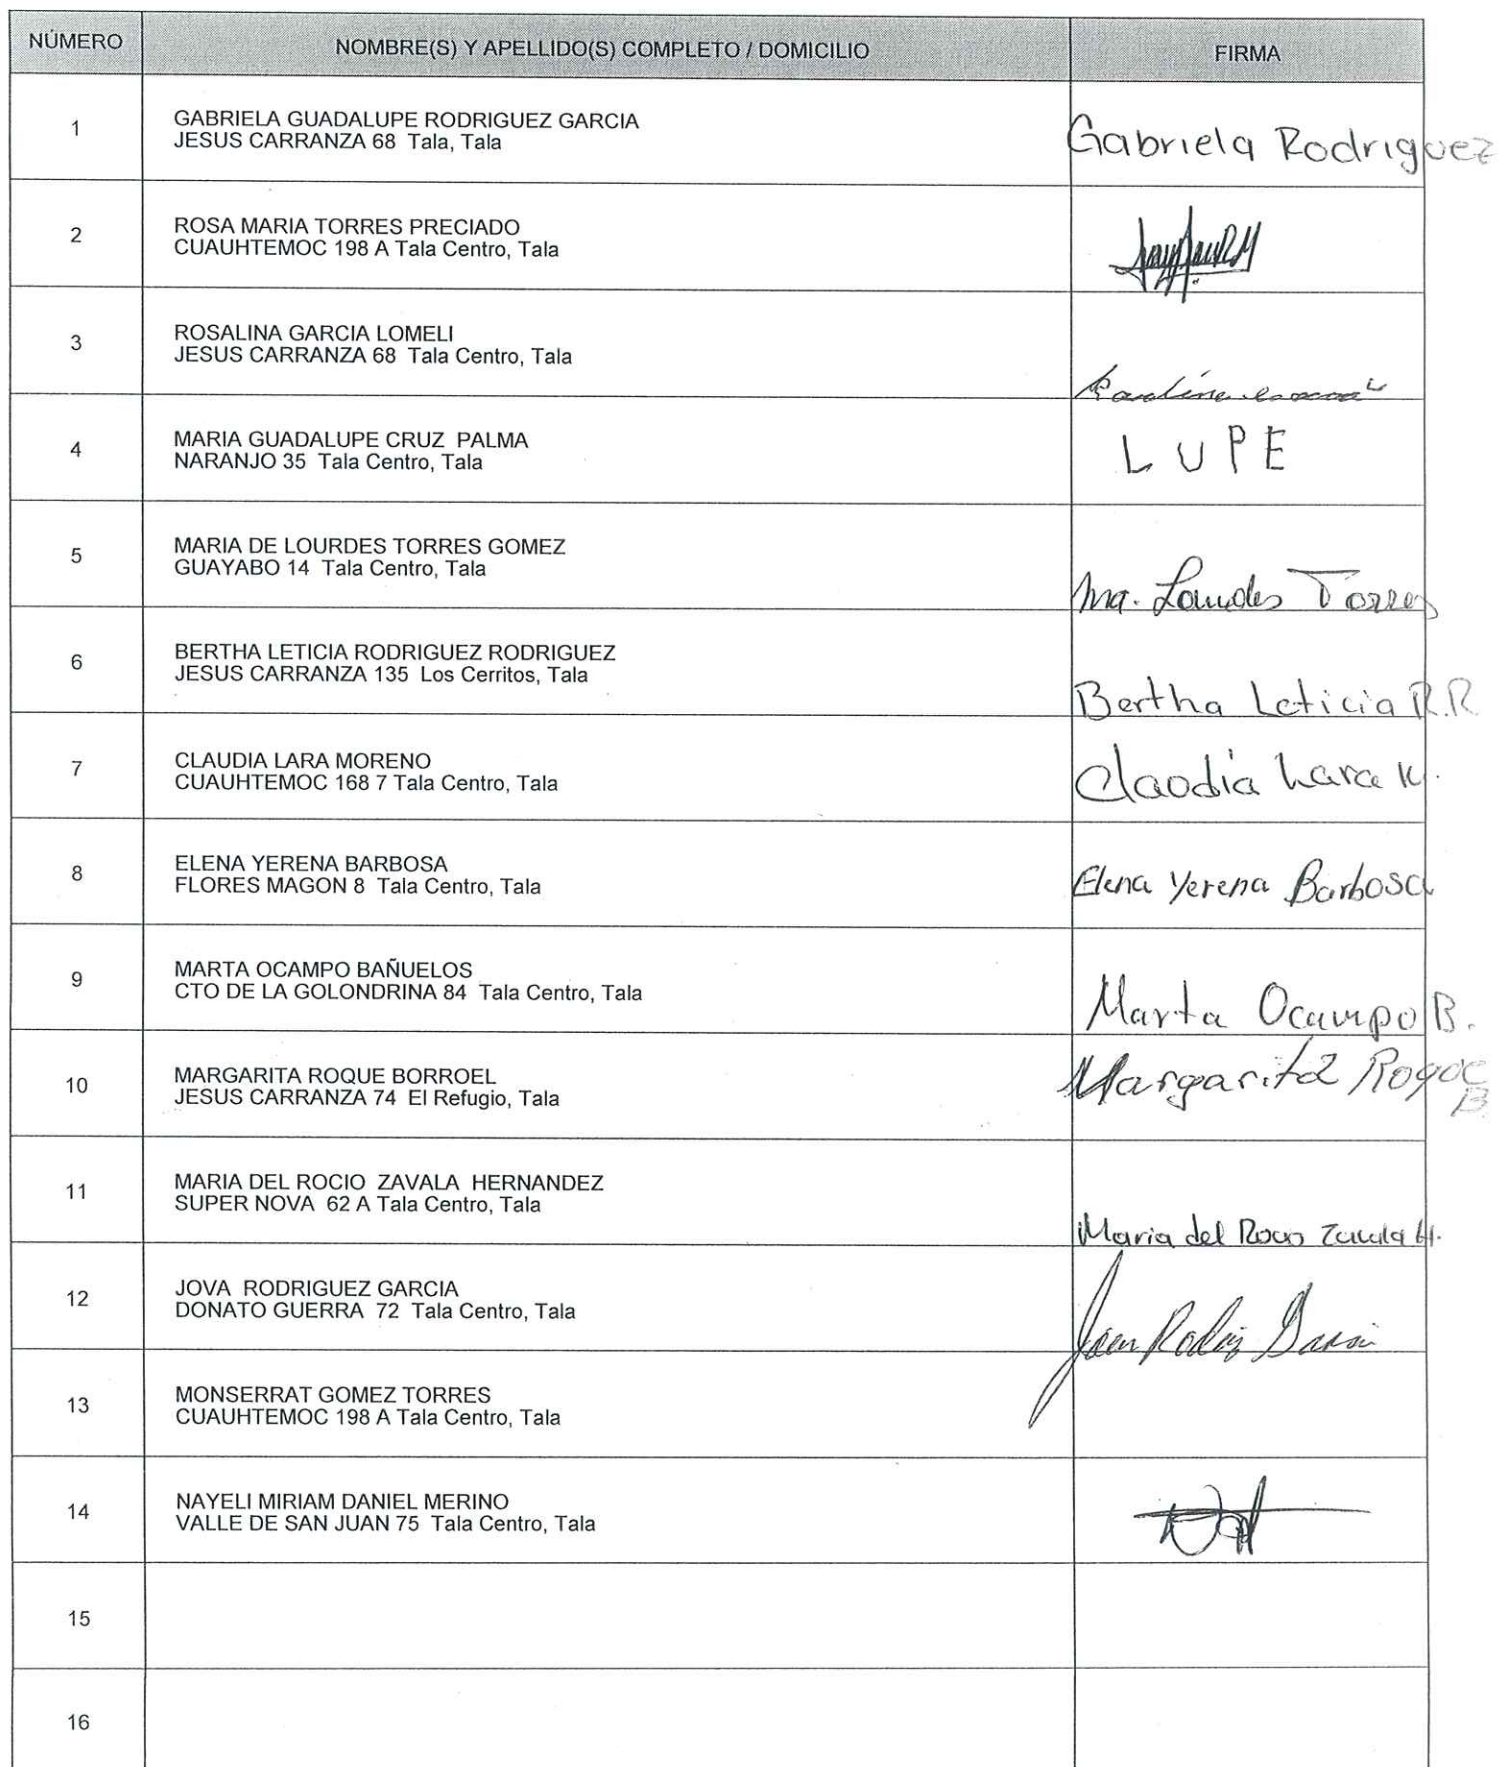 NÚMERO NOMBRE(S) Y APELLIDO(S) COMPLETO / DOMICILIO FIRMA
1 GABRIELA GUADALUPE RODRIGUEZ GARCIA
JESUS CARRANZA 68 Tala, Tala
Gabriela Rodriguez
2 ROSA MARIA TORRES PRECIADO
CUAUHTEMOC 198 A Tala Centro, Tala
3 ROSALINA GARCIA LOMELI
JESUS CARRANZA 68 Tala Centro, Tala
4 MARIA GUADALUPE CRUZ PALMA
NARANJO 35 Tala Centro, Tala
LUPE
5 MARIA DE LOURDES TORRES GOMEZ
GUAYABO 14 Tala Centro, Tala
Ma. Lourdes Torres
6 BERTHA LETICIA RODRIGUEZ RODRIGUEZ
JESUS CARRANZA 135 Los Cerritos, Tala
Bertha Leticia R.R
7 CLAUDIA LARA MORENO
CUAUHTEMOC 168 7 Tala Centro, Tala
Claudia Lara M.
8 ELENA YERENA BARBOSA
FLORES MAGON 8 Tala Centro, Tala
Elena Yerena Barbosa
9 MARTA OCAMPO BAÑUELOS
CTO DE LA GOLONDRINA 84 Tala Centro, Tala
Marta Ocampo B.
10 MARGARITA ROQUE BORROEL
JESUS CARRANZA 74 El Refugio, Tala
Margarita Roque
B
11 MARIA DEL ROCIO ZAVALA HERNANDEZ
SUPER NOVA 62 A Tala Centro, Tala
Maria del Rocio Zavala H.
12 JOVA RODRIGUEZ GARCIA
DONATO GUERRA 72 Tala Centro, Tala
13 MONSERRAT GOMEZ TORRES
CUAUHTEMOC 198 A Tala Centro, Tala
14 NAYELI MIRIAM DANIEL MERINO
VALLE DE SAN JUAN 75 Tala Centro, Tala
15
16